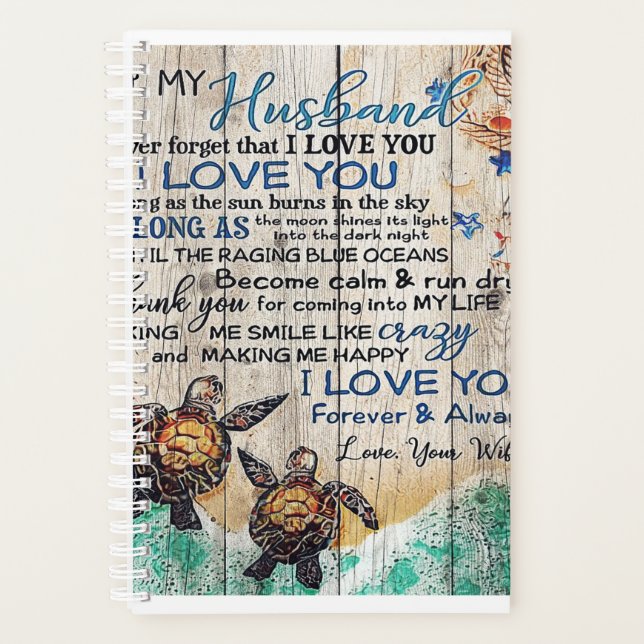 MY Husband
ver forget that I LOVE YOU
I LOVE YOU
ng as the sun burns in the sky
LONG AS the moon shines its light
into the dark night
IL THE RAGING BLUE OCEANS
Become calm & run dry
ank you for coming into MY LIFE
KING ME SMILE LIKE crazy
and MAKING ME HAPPY
I LOVE YO
Forever & Alwa
Love, Your Wif